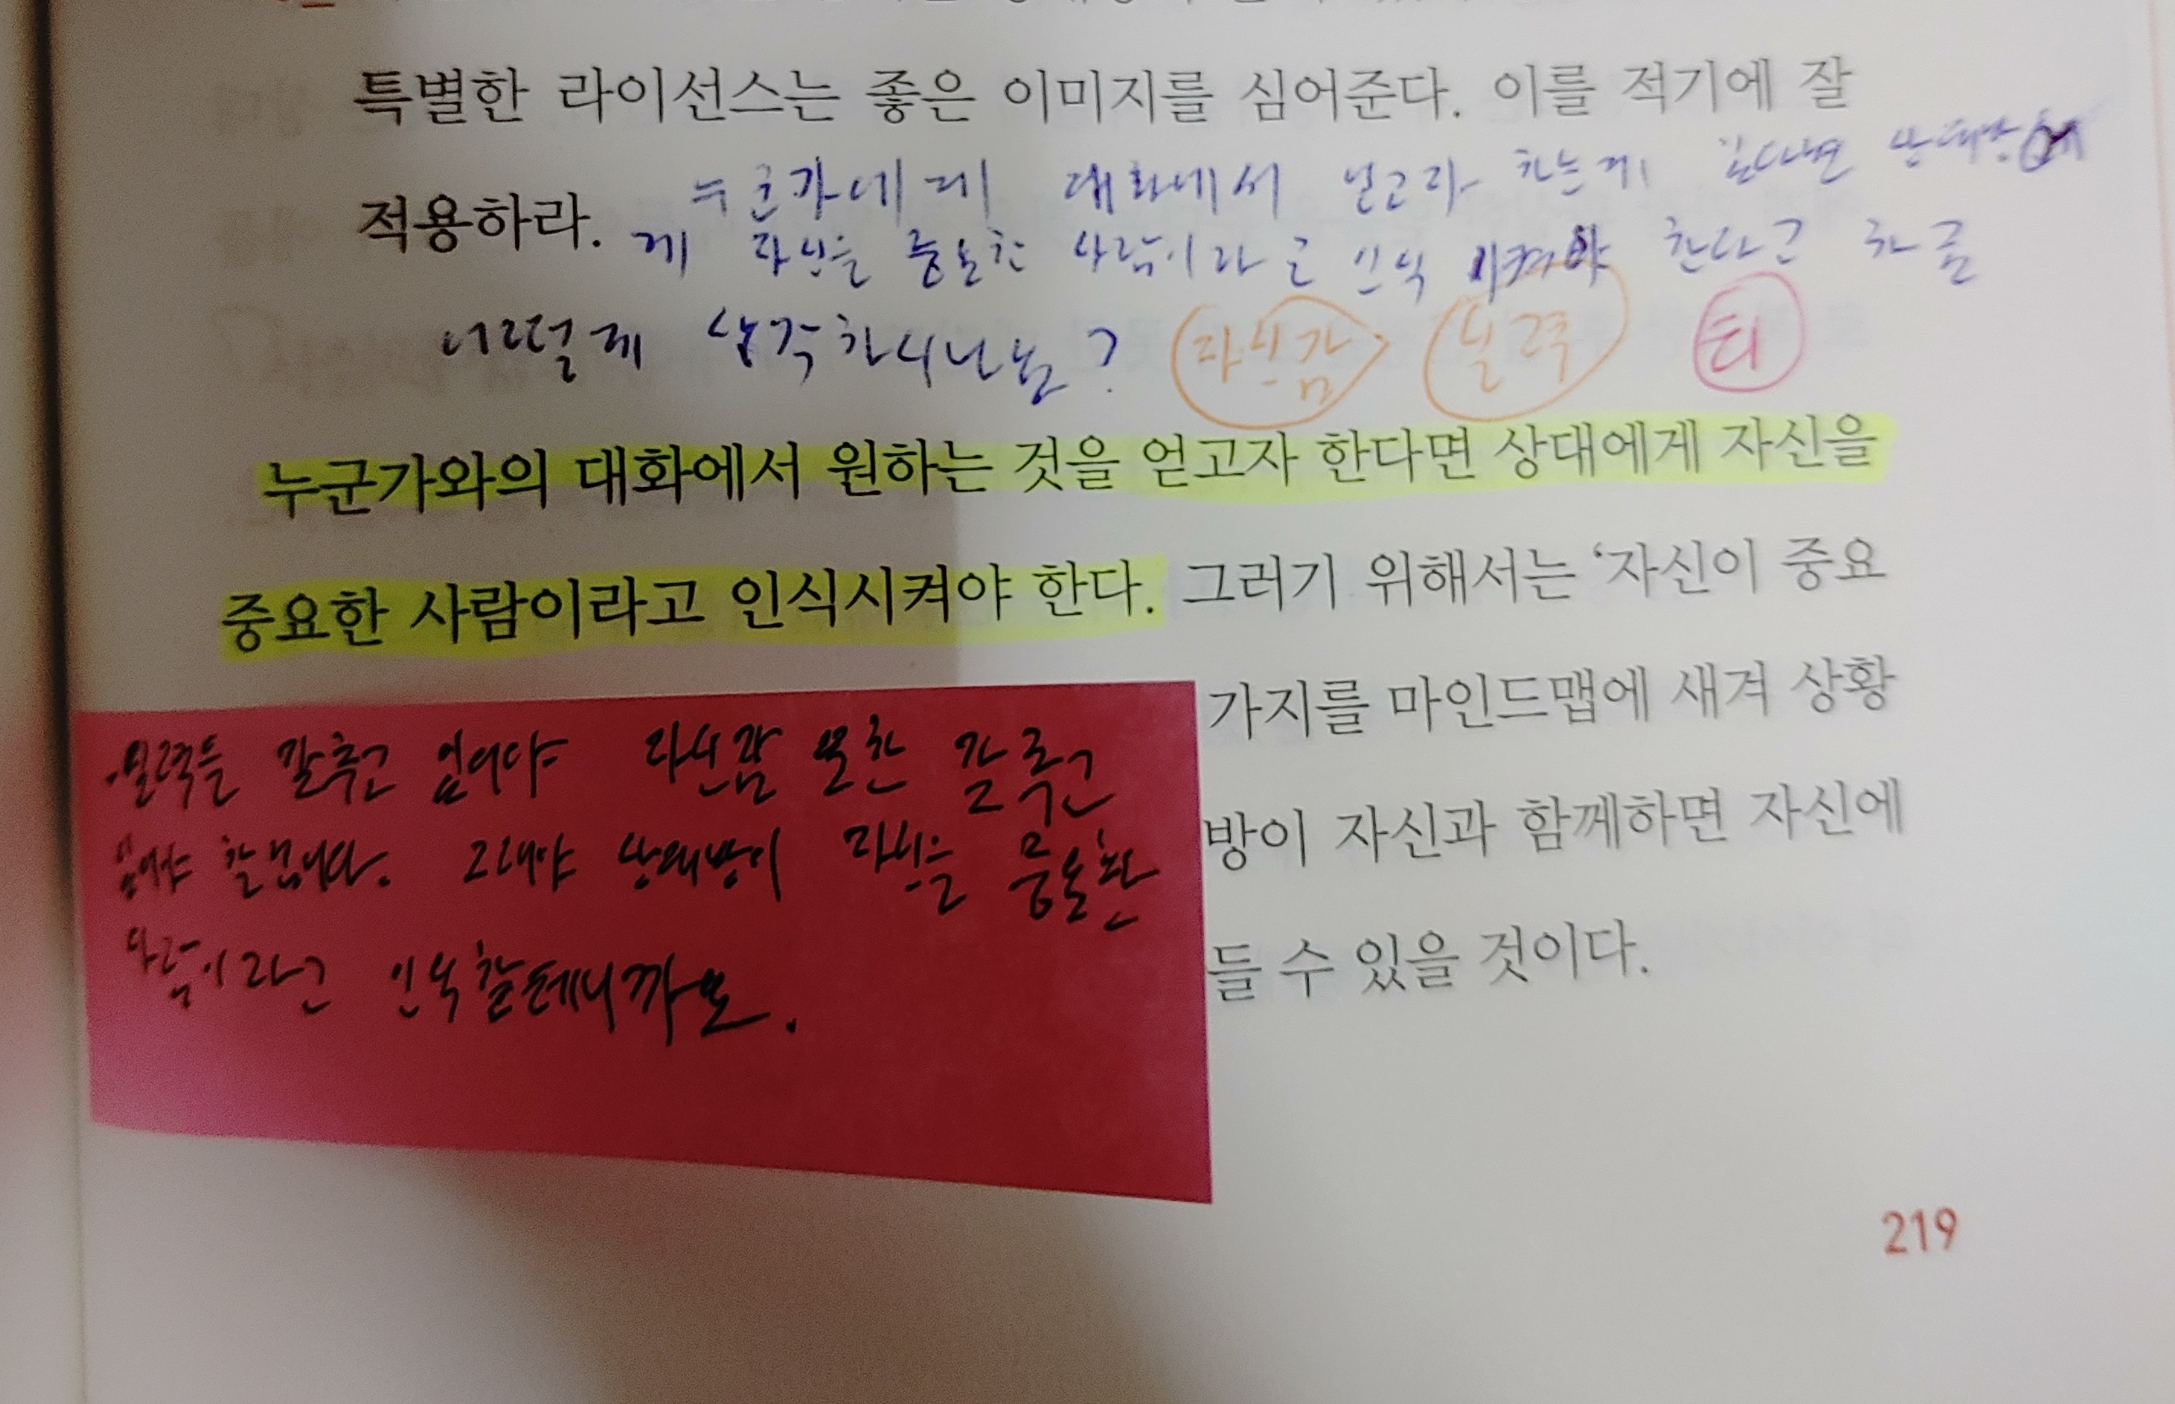 특별한 라이선스는 좋은 이미지를 심어준다. 이를 적기에 잘
적용하라.
누군가에게 대화에서 얻고자 하는게 있다면 상대방에
게 자신을 중요한 사람이라고 인식 시켜야 한다고 하는
어떻게 생각하시나요? 자신감 실력
누군가와의 대화에서 원하는 것을 얻고자 한다면 상대에게 자신을
중요한 사람이라고 인식시켜야 한다. 그러기 위해서는 ‘자신이 중요
가지를 마인드맵에 새겨 상황
방이 자신과 함께하면 자신에
들 수 있을 것이다.
실력을 갖추고 있어야 자신감 또한 갖추고
있어야 할 겁니다. 그래야 상대방이 자신을 중요한
사람이라고 인식할테니까요.
219